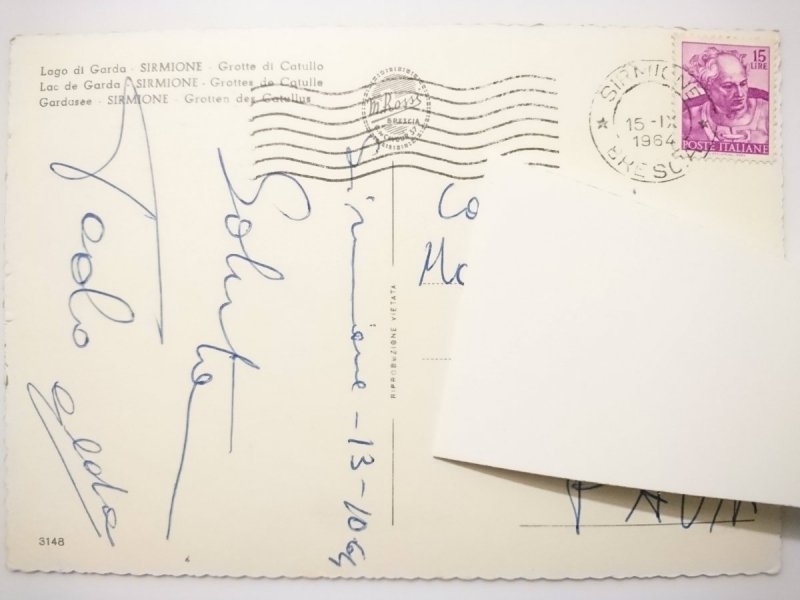 Lago di Garda - SIRMIONE - Grotte di Catullo
Lac de Garda - SIRMIONE - Grottes de Catulle
Gardasee - SIRMIONE - Grotten des Catullus
M. Ross
BRESCIA
SIRMIONE
15-IX
1964
BRESCIA
15
LIRE
POSTE ITALIANE
Sirmione - 13-10-64
Saluti
Paolo Aldo
RIPRODUZIONE VIETATA
PAVIA
3148